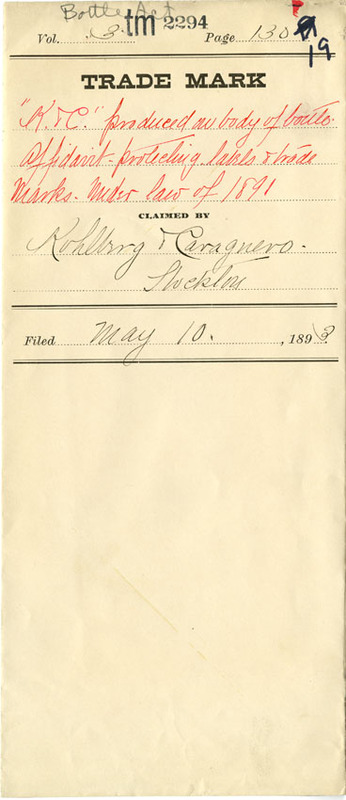 Bottle Act
tm 2294
Vol. 3 Page 130
19
TRADE MARK
"K. & C." produced on body of bottle.
Affidavit - protecting labels & trade
Marks. Under law of 1891
CLAIMED BY
Kohlberg & Cavagnero.
Stockton
Filed May 10. , 1893